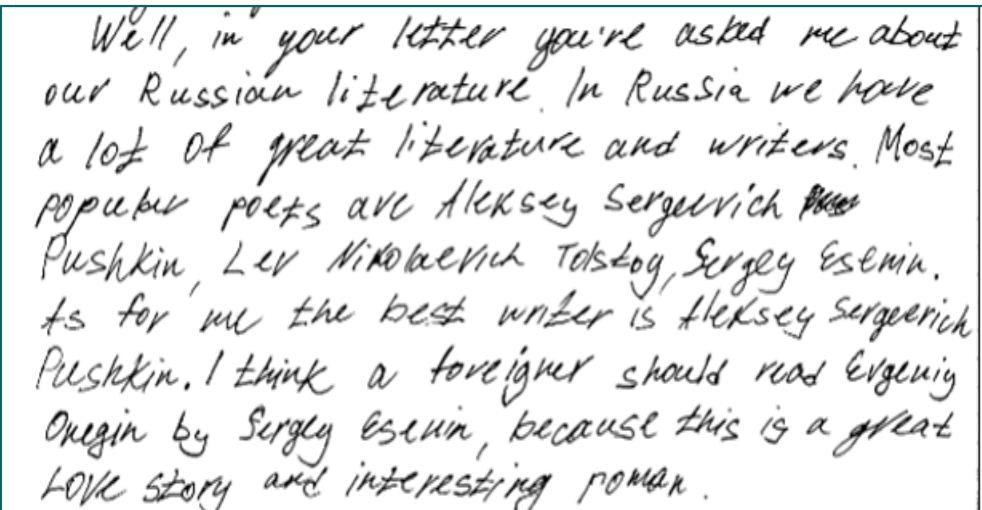 Well, in your letter you're asked me about
our Russian literature. In Russia we have
a lot of great literature and writers. Most
popular poets are Aleksey Sergeevich
Pushkin, Lev Nikolaevich Tolstoy, Sergey Esenin.
As for me the best writer is Aleksey Sergeevich
Pushkin. I think a foreigner should read Evgeniy
Onegin by Sergey Esenin, because this is a great
love story and interesting roman.